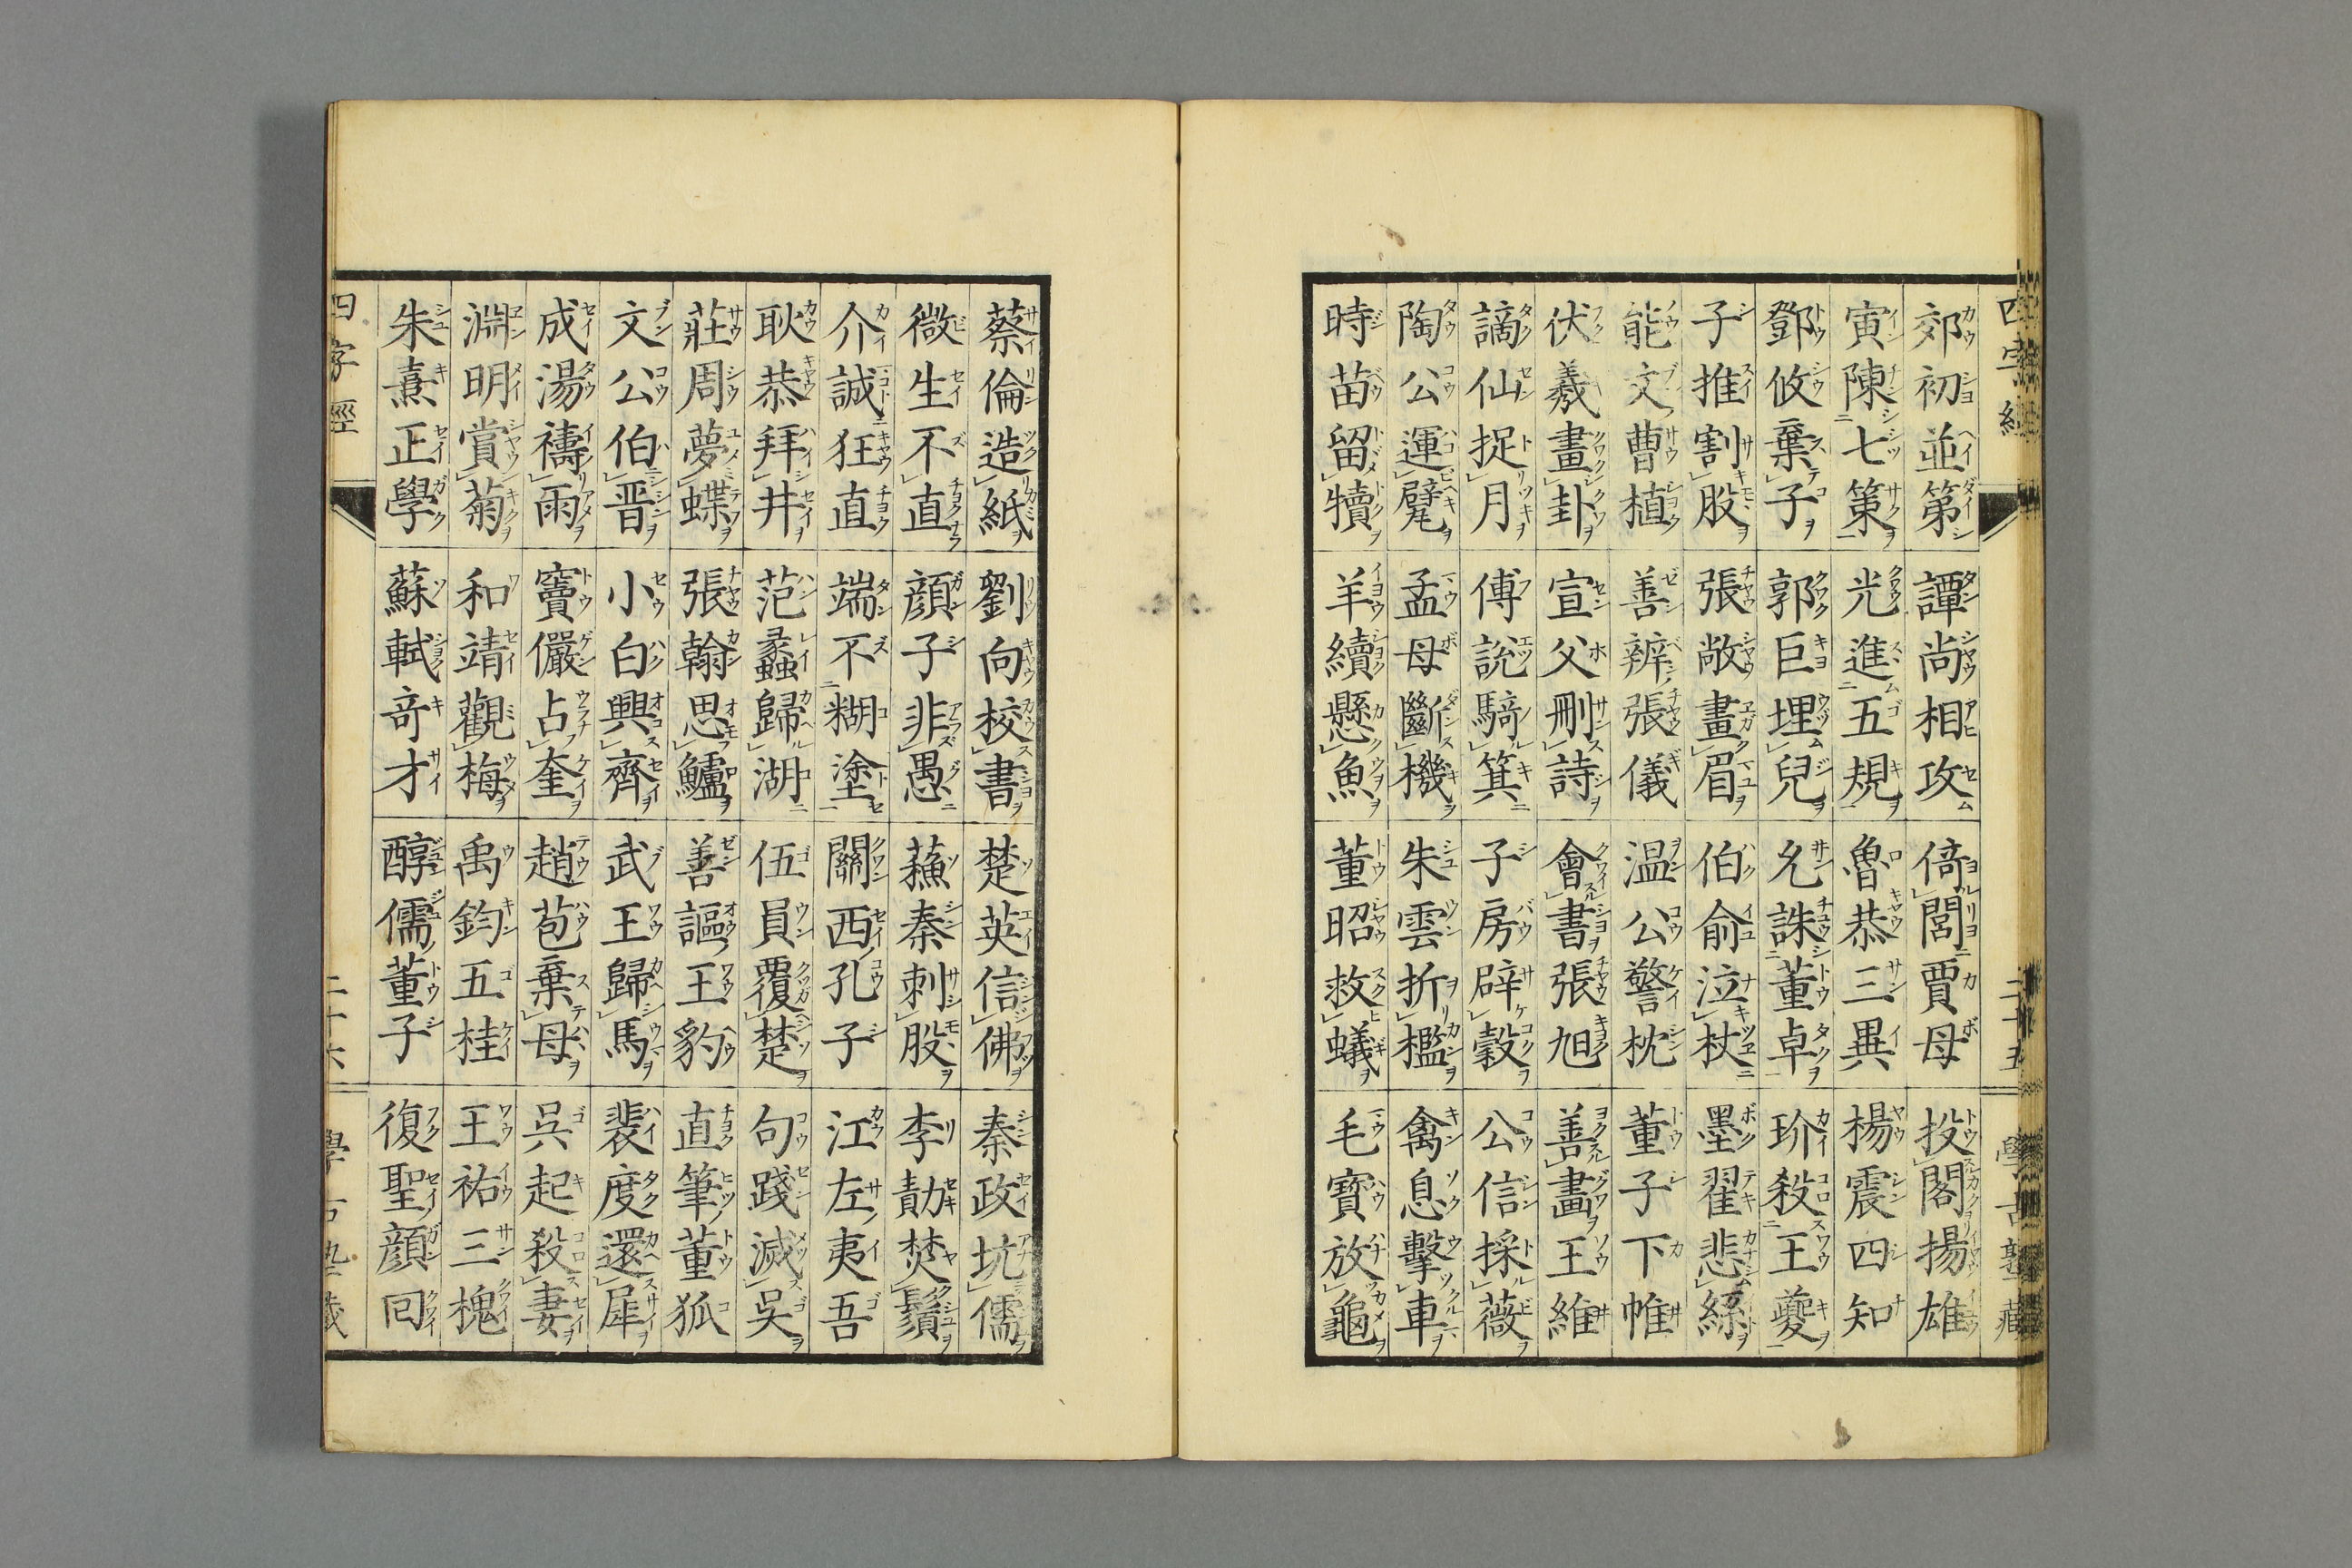 四字經 二十五 學古塾藏
郊初並第 譚尚相攻 倚閭賈母 投閣揚雄
寅陳七策 光進五規 魯恭三異 楊震四知
鄧攸棄子 郭巨埋兒 允誅董卓 玠殺王夔
子推割股 張敞畫眉 伯俞泣杖 墨翟悲絲
能文曹植 善辨張儀 温公警枕 董子下帷
伏羲畫卦 宣父刪詩 會書張旭 善畫王維
謫仙捉月 傅說騎箕 子房辟穀 公信採薇
陶公運甓 孟母斷機 朱雲折檻 禽息擊車
時苗留犢 羊續懸魚 董昭救蟻 毛寶放龜
蔡倫造紙 劉向校書 楚英信佛 秦政坑儒
微生不直 顔子非愚 蘓秦刺股 李勣焚鬚
介誠狂直 端不糊塗 關西孔子 江左夷吾
耿恭拜井 范蠡歸湖 伍員覆楚 句踐滅吳
莊周夢蝶 張翰思鱸 善謳王豹 直筆董狐
文公伯晋 小白興齊 武王歸馬 裴度還犀
成湯禱雨 竇儼占奎 趙苞棄母 吳起殺妻
淵明賞菊 和靖觀梅 禹鈞五桂 王祐三槐
朱熹正學 蘇軾奇才 醇儒董子 復聖顔回
四字經 二十六 學古塾藏